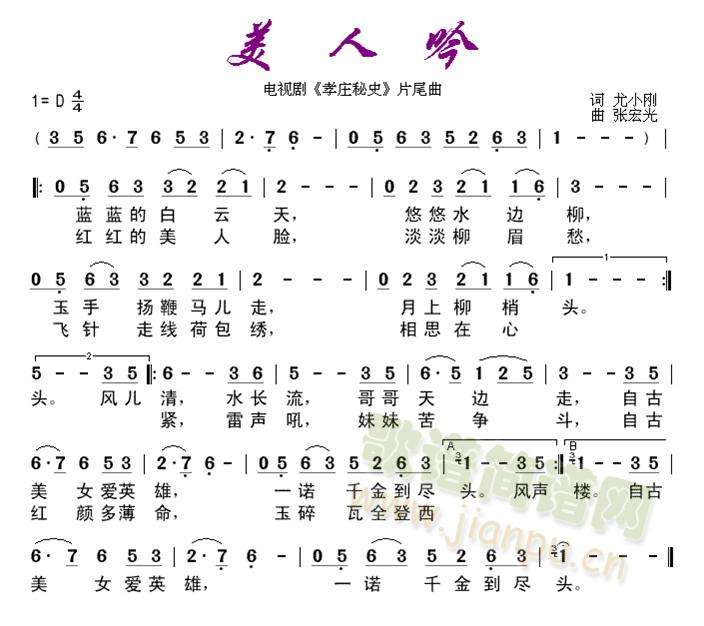 美人吟
电视剧《孝庄秘史》片尾曲
1= D 4/4
词 尤小刚
曲 张宏光
( 3 5 6· 7 6 5 3 | 2· 7 6 - | 0 5 6 3 5 2 6 3 | 1 - - - )
0 5 6 3 3 2 2 1 | 2 - - - | 0 2 3 2 1 1 6 | 3 - - -
蓝蓝的白云天， 悠悠水边柳，
红红的美人脸， 淡淡柳眉愁，
1
0 5 6 3 3 2 2 2 1 | 2 - - - | 0 2 3 2 1 1 6 | 1 - - :||
玉手扬鞭马儿走， 月上柳梢头。
飞针走线荷包绣， 相思在心
2
5 - - 3 5 ||: 6 - - 3 6 | 5 - - 3 5 | 6· 5 1 2 5 | 3 - - 3 5 |
头。风儿清， 水长流， 哥哥天边走， 自古
紧， 雷声吼， 妹妹苦争斗， 自古
A B
6· 7 6 5 3 | 2· 7 6 - | 0 5 6 3 5 2 6 3 | 1 - - 3 5 :|| 1 - - 3 5
美女爱英雄， 一诺千金到尽头。风声楼。自古
红颜多薄命， 玉碎瓦全登西
歌谱简谱网
www.jianpu.cn
6· 7 6 5 3 | 2· 7 6 - | 0 5 6 3 5 2 6 3 | 1 - - ||
美女爱英雄， 一诺千金到尽头。